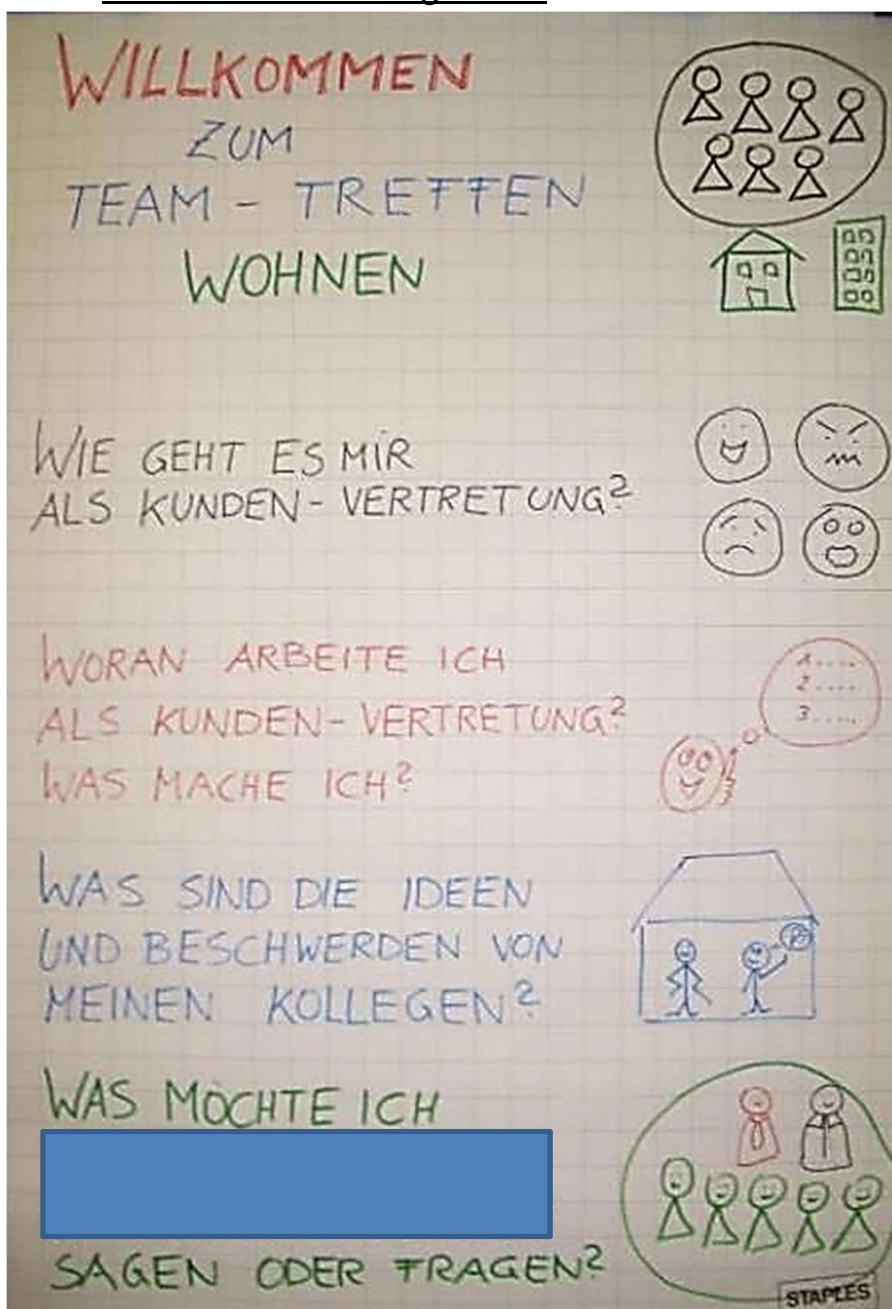 WILLKOMMEN
ZUM
TEAM - TREFFEN
WOHNEN
WIE GEHT ES MIR
ALS KUNDEN-VERTRETUNG?
WORAN ARBEITE ICH
ALS KUNDEN-VERTRETUNG?
WAS MACHE ICH?
1....
2....
3.....
WAS SIND DIE IDEEN
UND BESCHWERDEN VON
MEINEN KOLLEGEN?
WAS MÖCHTE ICH
SAGEN ODER FRAGEN?
STAPLES